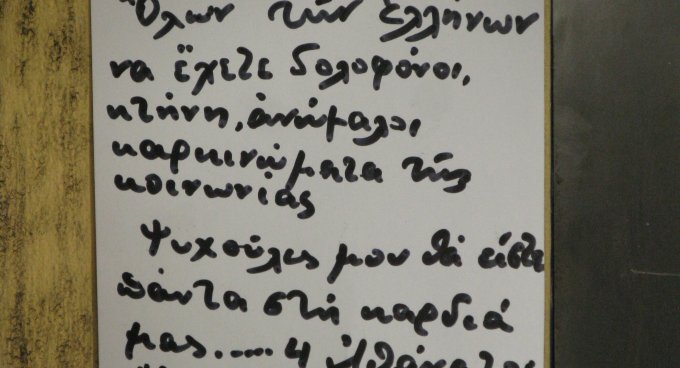 Ὅλων τῶν ἑλλήνων
να ἔχετε δολοφόνοι,
κτήνη, ἀνώμαλοι
καρκινώματα τῆς
κοινωνίας
Ψυχούλες μου θὰ εἶστε
πάντα στὴ καρδιά
μας.....